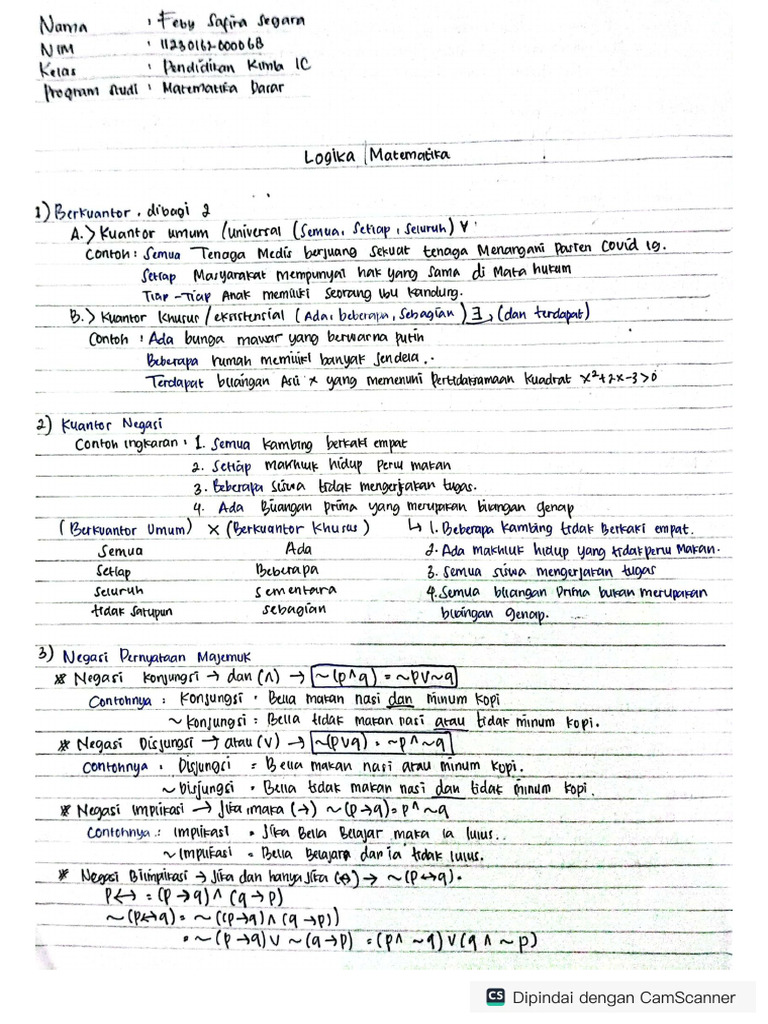 Nama : Feby Safira Segara
NIM : 11230162000068
Kelas : Pendidikan Kimia 1C
Program Studi : Matematika Dasar
Logika Matematika
1) Berkuantor, dibagi 2
A.> Kuantor umum /universal (Semua, Setiap, seluruh) ∀
Contoh : Semua Tenaga Medis berjuang sekuat tenaga Menangani Pasien Covid 19.
Setiap Masyarakat mempunyai hak yang sama di Mata hukum
Tiap-Tiap Anak memiliki seorang Ibu kandung.
B.> Kuantor khusus /eksistensial (Ada, beberapa, Sebagian) ∃, (dan terdapat)
Contoh : Ada bunga mawar yang berwarna putih
Beberapa rumah memiliki banyak Jendela.
Terdapat bilangan Asli x yang memenuhi Pertidaksamaan Kuadrat x²+2x-3>0
2) Kuantor Negasi
Contoh ingkaran : 1. Semua kambing berkaki empat
2. Setiap makhluk hidup perlu makan
3. Beberapa siswa tidak mengerjakan tugas.
4. Ada Bilangan prima yang merupakan bilangan genap
(Berkuantor Umum) × (Berkuantor Khusus) ↳ 1. Beberapa kambing tidak Berkaki empat.
Semua Ada 2. Ada makhluk hidup yang tidak perlu Makan.
Setiap Beberapa 3. Semua siswa mengerjakan tugas
Seluruh sementara 4. Semua bilangan Prima bukan merupakan
tidak satupun sebagian bilangan genap.
3) Negasi Pernyataan Majemuk
* Negasi konjungsi → dan (∧) → ~(p∧q) = ~p∨~q
Contohnya : Konjungsi = Bella makan nasi dan minum kopi
~ Konjungsi = Bella tidak makan nasi atau tidak minum kopi.
* Negasi Disjungsi → atau (∨) → ~(p∨q) = ~p ∧ ~q
Contohnya : Disjungsi = Bella makan nasi atau minum kopi.
~ Disjungsi = Bella tidak makan nasi dan tidak minum kopi.
* Negasi Implikasi → Jika maka (→) ~(p→q) = p ∧ ~q
Contohnya : Implikasi = Jika Bella Belajar maka ia lulus..
~ Implikasi = Bella Belajar dan ia tidak lulus.
* Negasi Biimplikasi → Jika dan hanya jika (↔) → ~(p↔q) =
p↔ = (p→q) ∧ (q→p)
~(p↔q) = ~((p→q) ∧ (q→p))
= ~(p→q) ∨ ~(q→p) = (p∧ ~q) ∨ (q ∧ ~p)
CS Dipindai dengan CamScanner